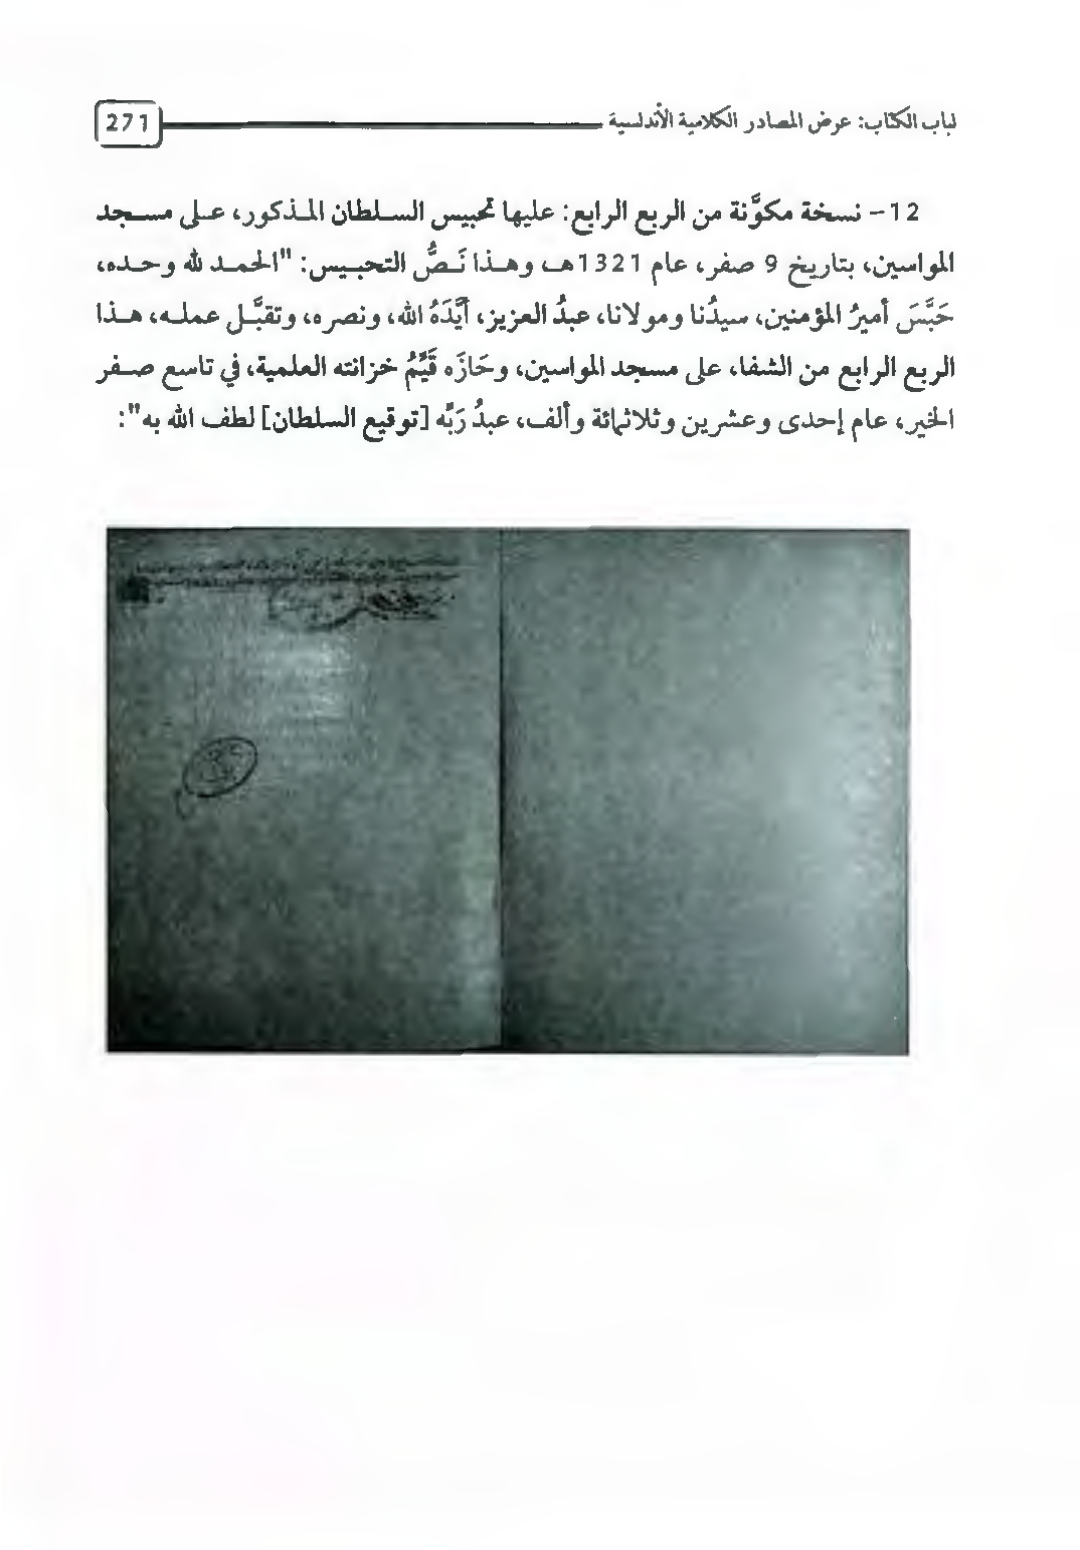 لباب الكتاب: عرض المصادر الكلامية الأندلسية 271
12- نسخة مكوَّنة من الربع الرابع: عليها تحبيس السلطان المذكور، على مسجد
المواسين، بتاريخ 9 صفر، عام 1321هـ، وهذا نَصُّ التحبيس: "الحمد لله وحده،
حَبَّسَ أميرُ المؤمنين، سيدُنا ومولانا، عبدُ العزيز، أيَّدَهُ الله، ونصره، وتقبَّل عمله، هذا
الربع الرابع من الشفا، على مسجد المواسين، وحَازَه قَيِّمُ خزانته العلمية، في تاسع صفر
الخير، عام إحدى وعشرين وثلاثمائة وألف، عبدُ رَبِّه [توقيع السلطان] لطف الله به":